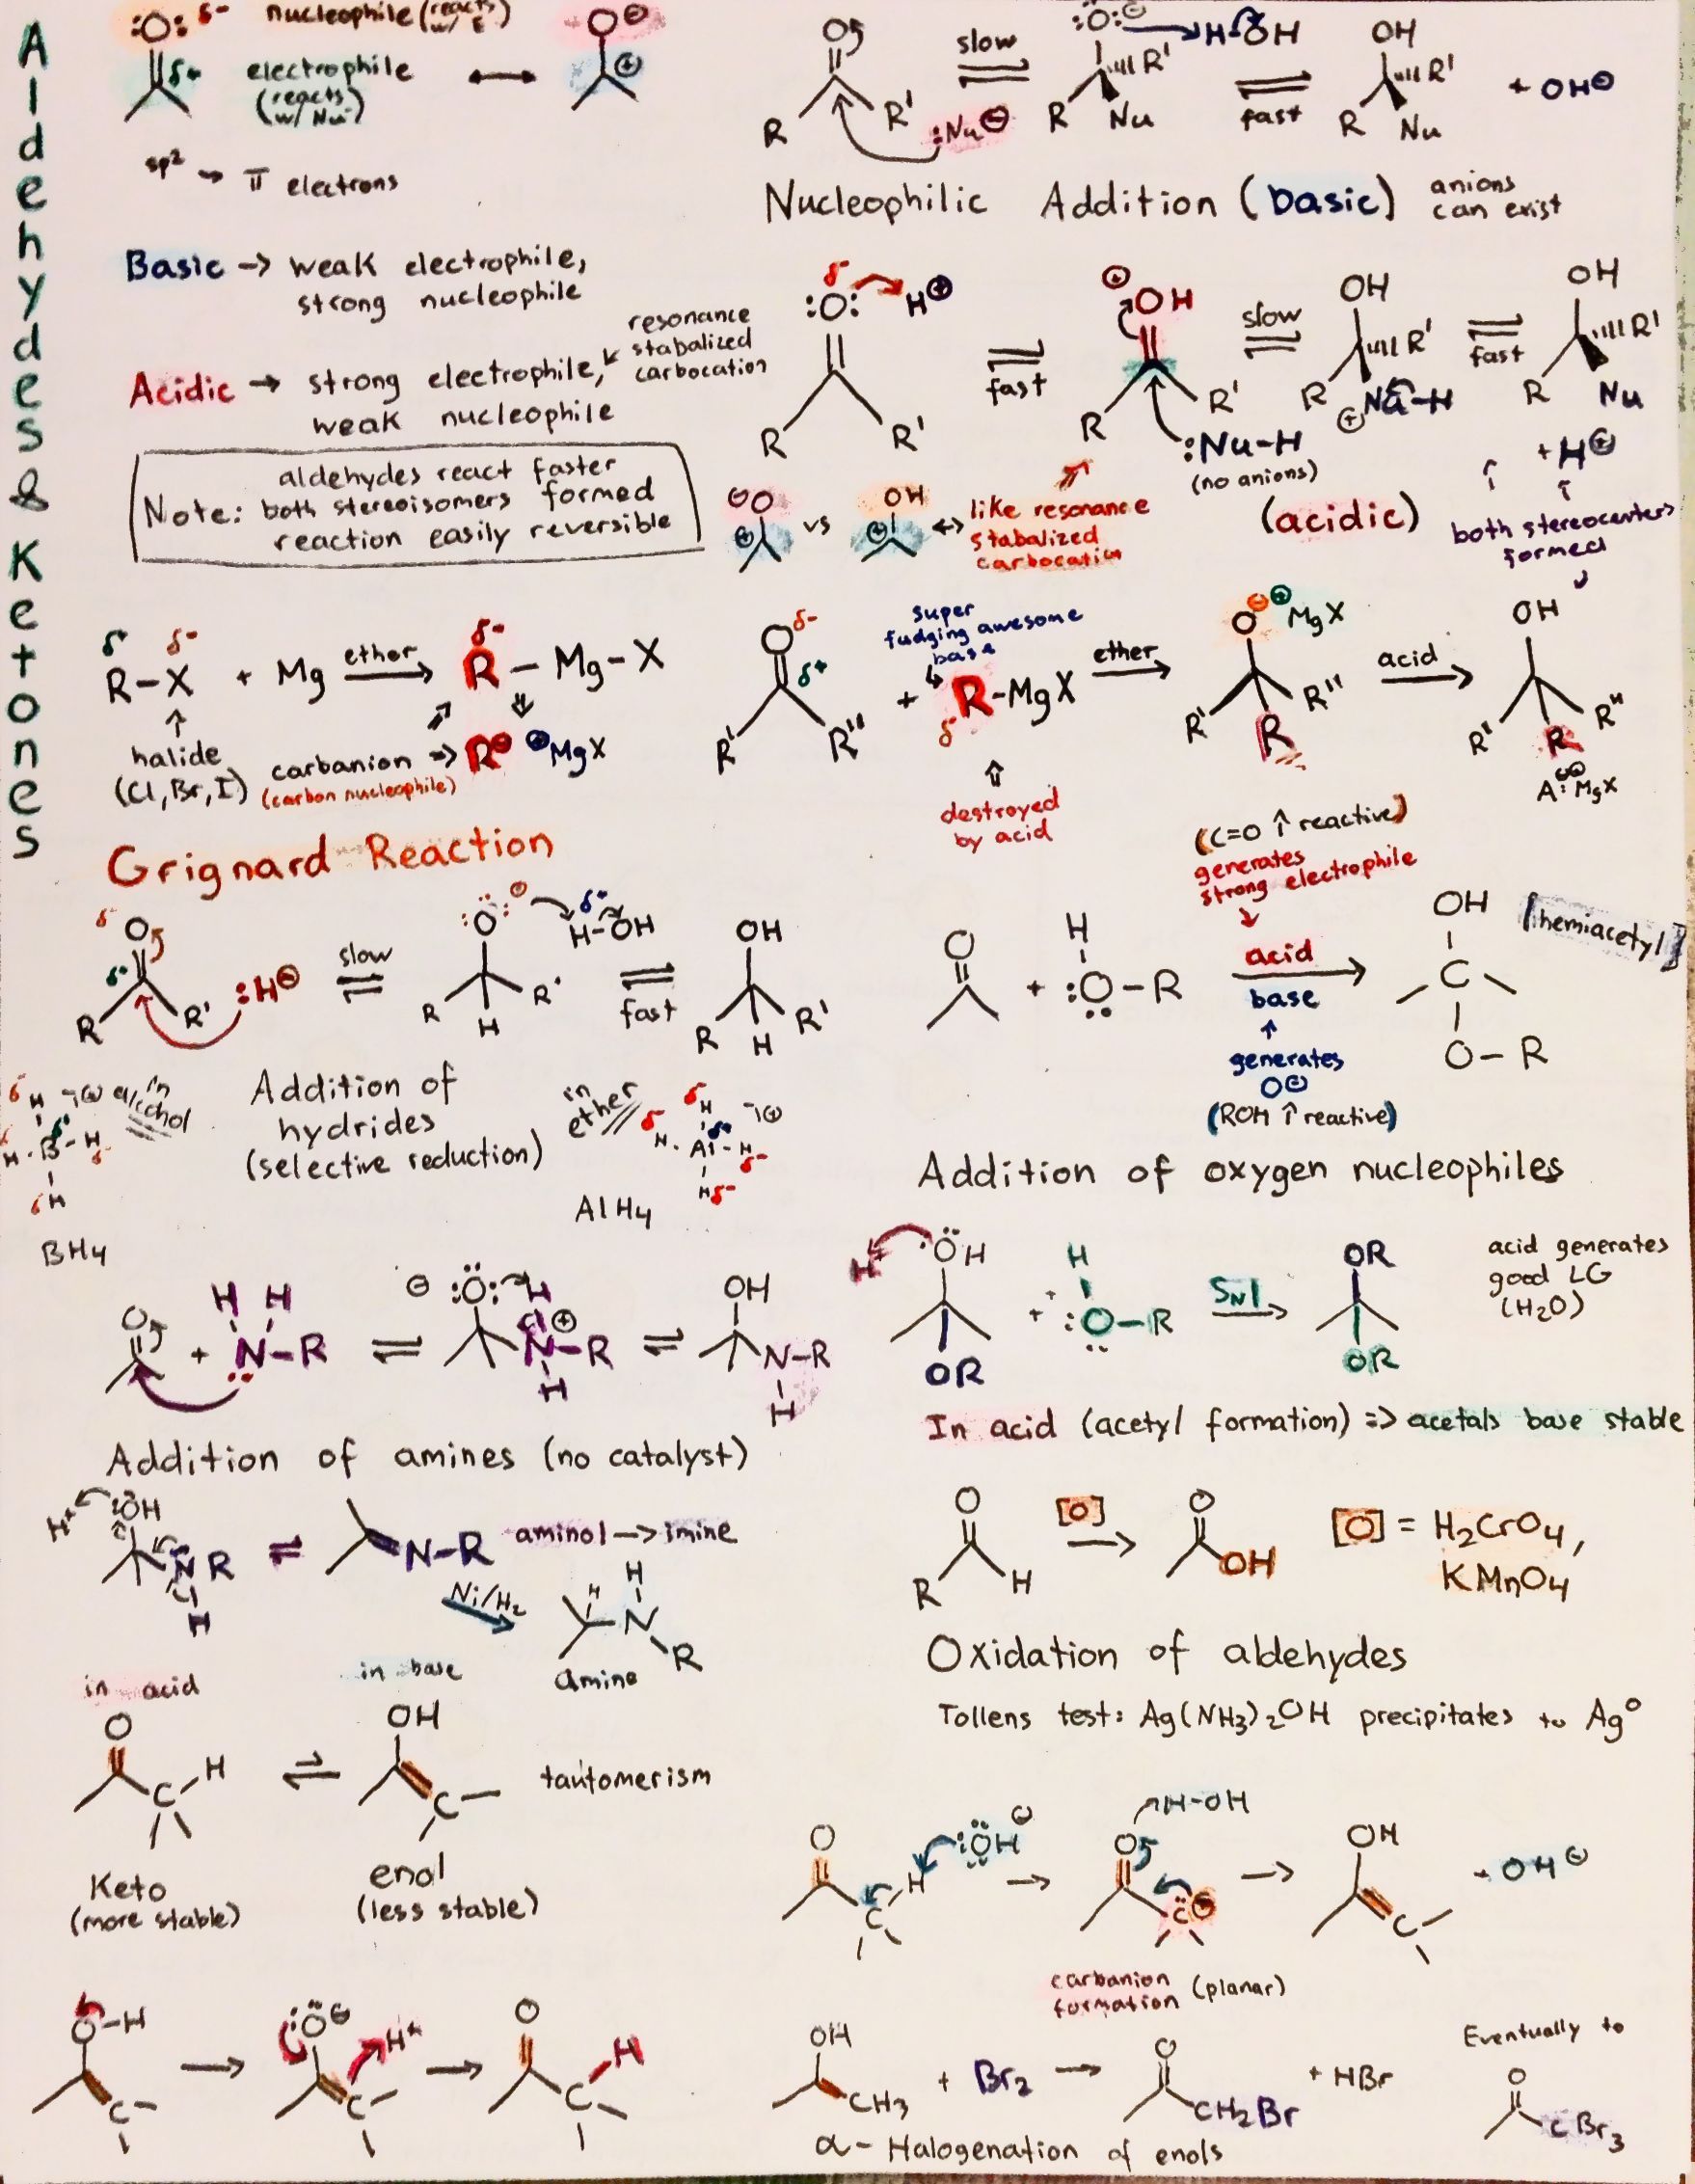 Aldehydes & Ketones
:O: δ- nucleophile (reacts w/ E
δ+ electrophile (reacts w/ Nu-)
O⊖
⊕
sp² → π electrons
O
R R'
:Nu⊖
slow
:O:⊖ H-OH
R'
R Nu
fast
OH
R'
R Nu
+ OH⊖
Nucleophilic Addition (basic) anions can exist
Basic → weak electrophile,
strong nucleophile
Acidic → strong electrophile,
weak nucleophile
resonance
stabalized
carbocation
aldehydes react faster
Note: both stereoisomers formed
reaction easily reversible
δ-
:O: H⊕
R R'
fast
⊕
OH
R R'
:Nu-H
(no anions)
slow
OH
R'
R ⊕Nu-H
fast
OH
R'
R Nu
+H⊕
(acidic)
both stereocenters
formed
⊖O
⊕
vs
OH
⊕
↔ like resonance
stabalized
carbocation
δ+ δ-
R-X + Mg ether → R-Mg-X
δ-
halide
(Cl, Br, I)
carbanion ⇒ R⊖ ⊕MgX
(carbon nucleophile)
Grignard Reaction
O δ-
δ+
R' R''
+
super
fudging awesome
base
R-MgX
δ-
destroyed
by acid
ether
O⊖ ⊕MgX
R' R R''
acid
OH
R' R R''
A:⊖⊕MgX
δ- O
δ+
R R'
:H⊖
slow
:O:⊖ δ+
H-OH
R H R'
fast
OH
R H R'
Addition of
hydrides
(selective reduction)
in alcohol
δ- H
H-B-H
H
BH4
in ether
H
H-Al-H
H
AlH4
(C=O ↑ reactive)
generates
strong electrophile
O
+ H
:O-R
acid
base
generates
O⊖
(ROH ↑ reactive)
OH
C
O-R
[hemiacetyl]
Addition of oxygen nucleophiles
O + H H
N-R
⊖ :O: H
N⊕-R
H
OH
N-R
H
Addition of amines (no catalyst)
H+ :OH
OR
+ H
:O-R
SN1
OR
OR
acid generates
good LG
(H2O)
In acid (acetyl formation) => acetals base stable
H+ :OH
N R
H
N-R
aminol → imine
Ni/H2
H H
N
R
amine
O
R H
[O]
O
OH
[O] = H2CrO4,
KMnO4
Oxidation of aldehydes
Tollens test: Ag(NH3)2OH precipitates to Ag⁰
in acid
in base
O
C-H
OH
C
tautomerism
Keto
(more stable)
enol
(less stable)
O
C H
:OH⊖
O H-OH
C⊖
OH
C
+ OH⊖
carbanion
formation (planar)
O-H
C
:O⊖
H+
C
O
H
C
OH
CH3
+ Br2 →
O
CH2Br
+ HBr
Eventually to
O
CBr3
α- Halogenation of enols